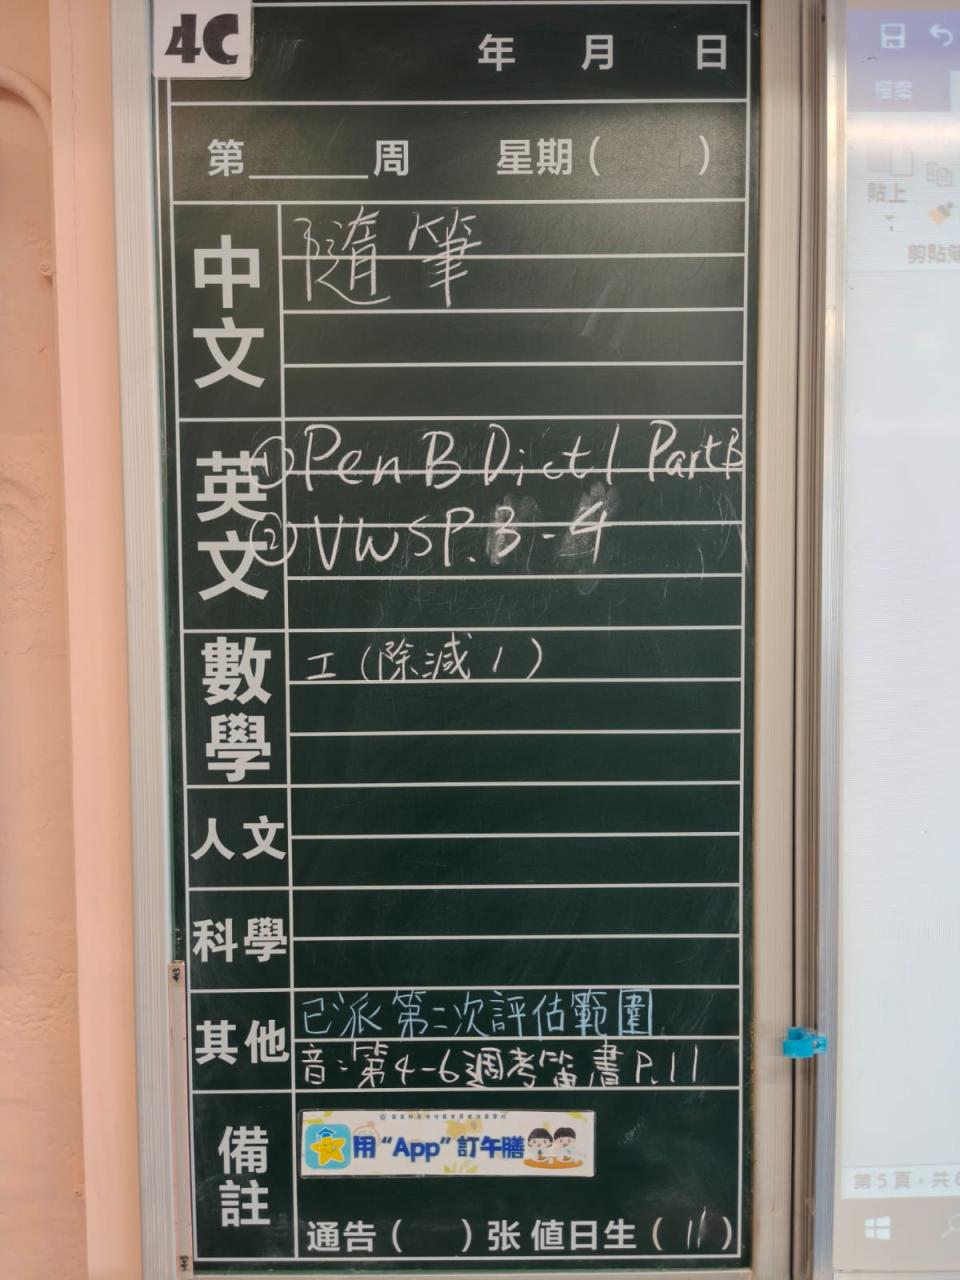 4C
年 月 日
第______周 星期( )
中文
隨筆
英文
① Pen B Dict 1 Part B
② VWS P.3-4
數學
工(除減1)
人文
科學
其他
已派第二次評估範圍
音:第4-6週考笛書P.11
備註
用“App”訂午膳
通告( )张 值日生(11)
檔案
貼上
剪貼簿
第5頁,共6